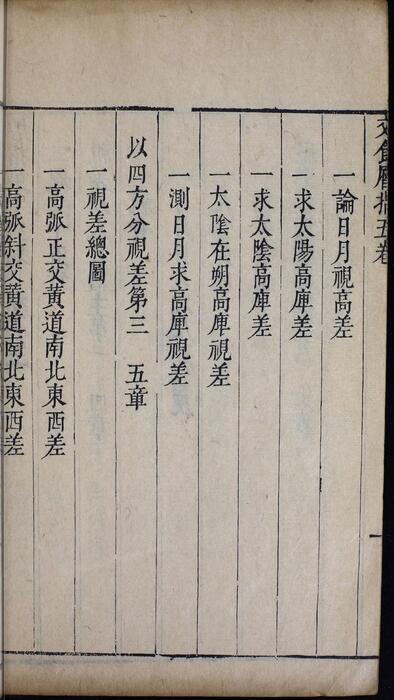 交食曆指五卷
一論日月視高差
一求太陽高庳差
一求太陰高庳差
一太陰在朔高庳視差
一測日月求高庳視差
以四方分視差第三 五章
一視差總圖
一高弧正交黃道南北東西差
一高弧斜交黃道南北東西差